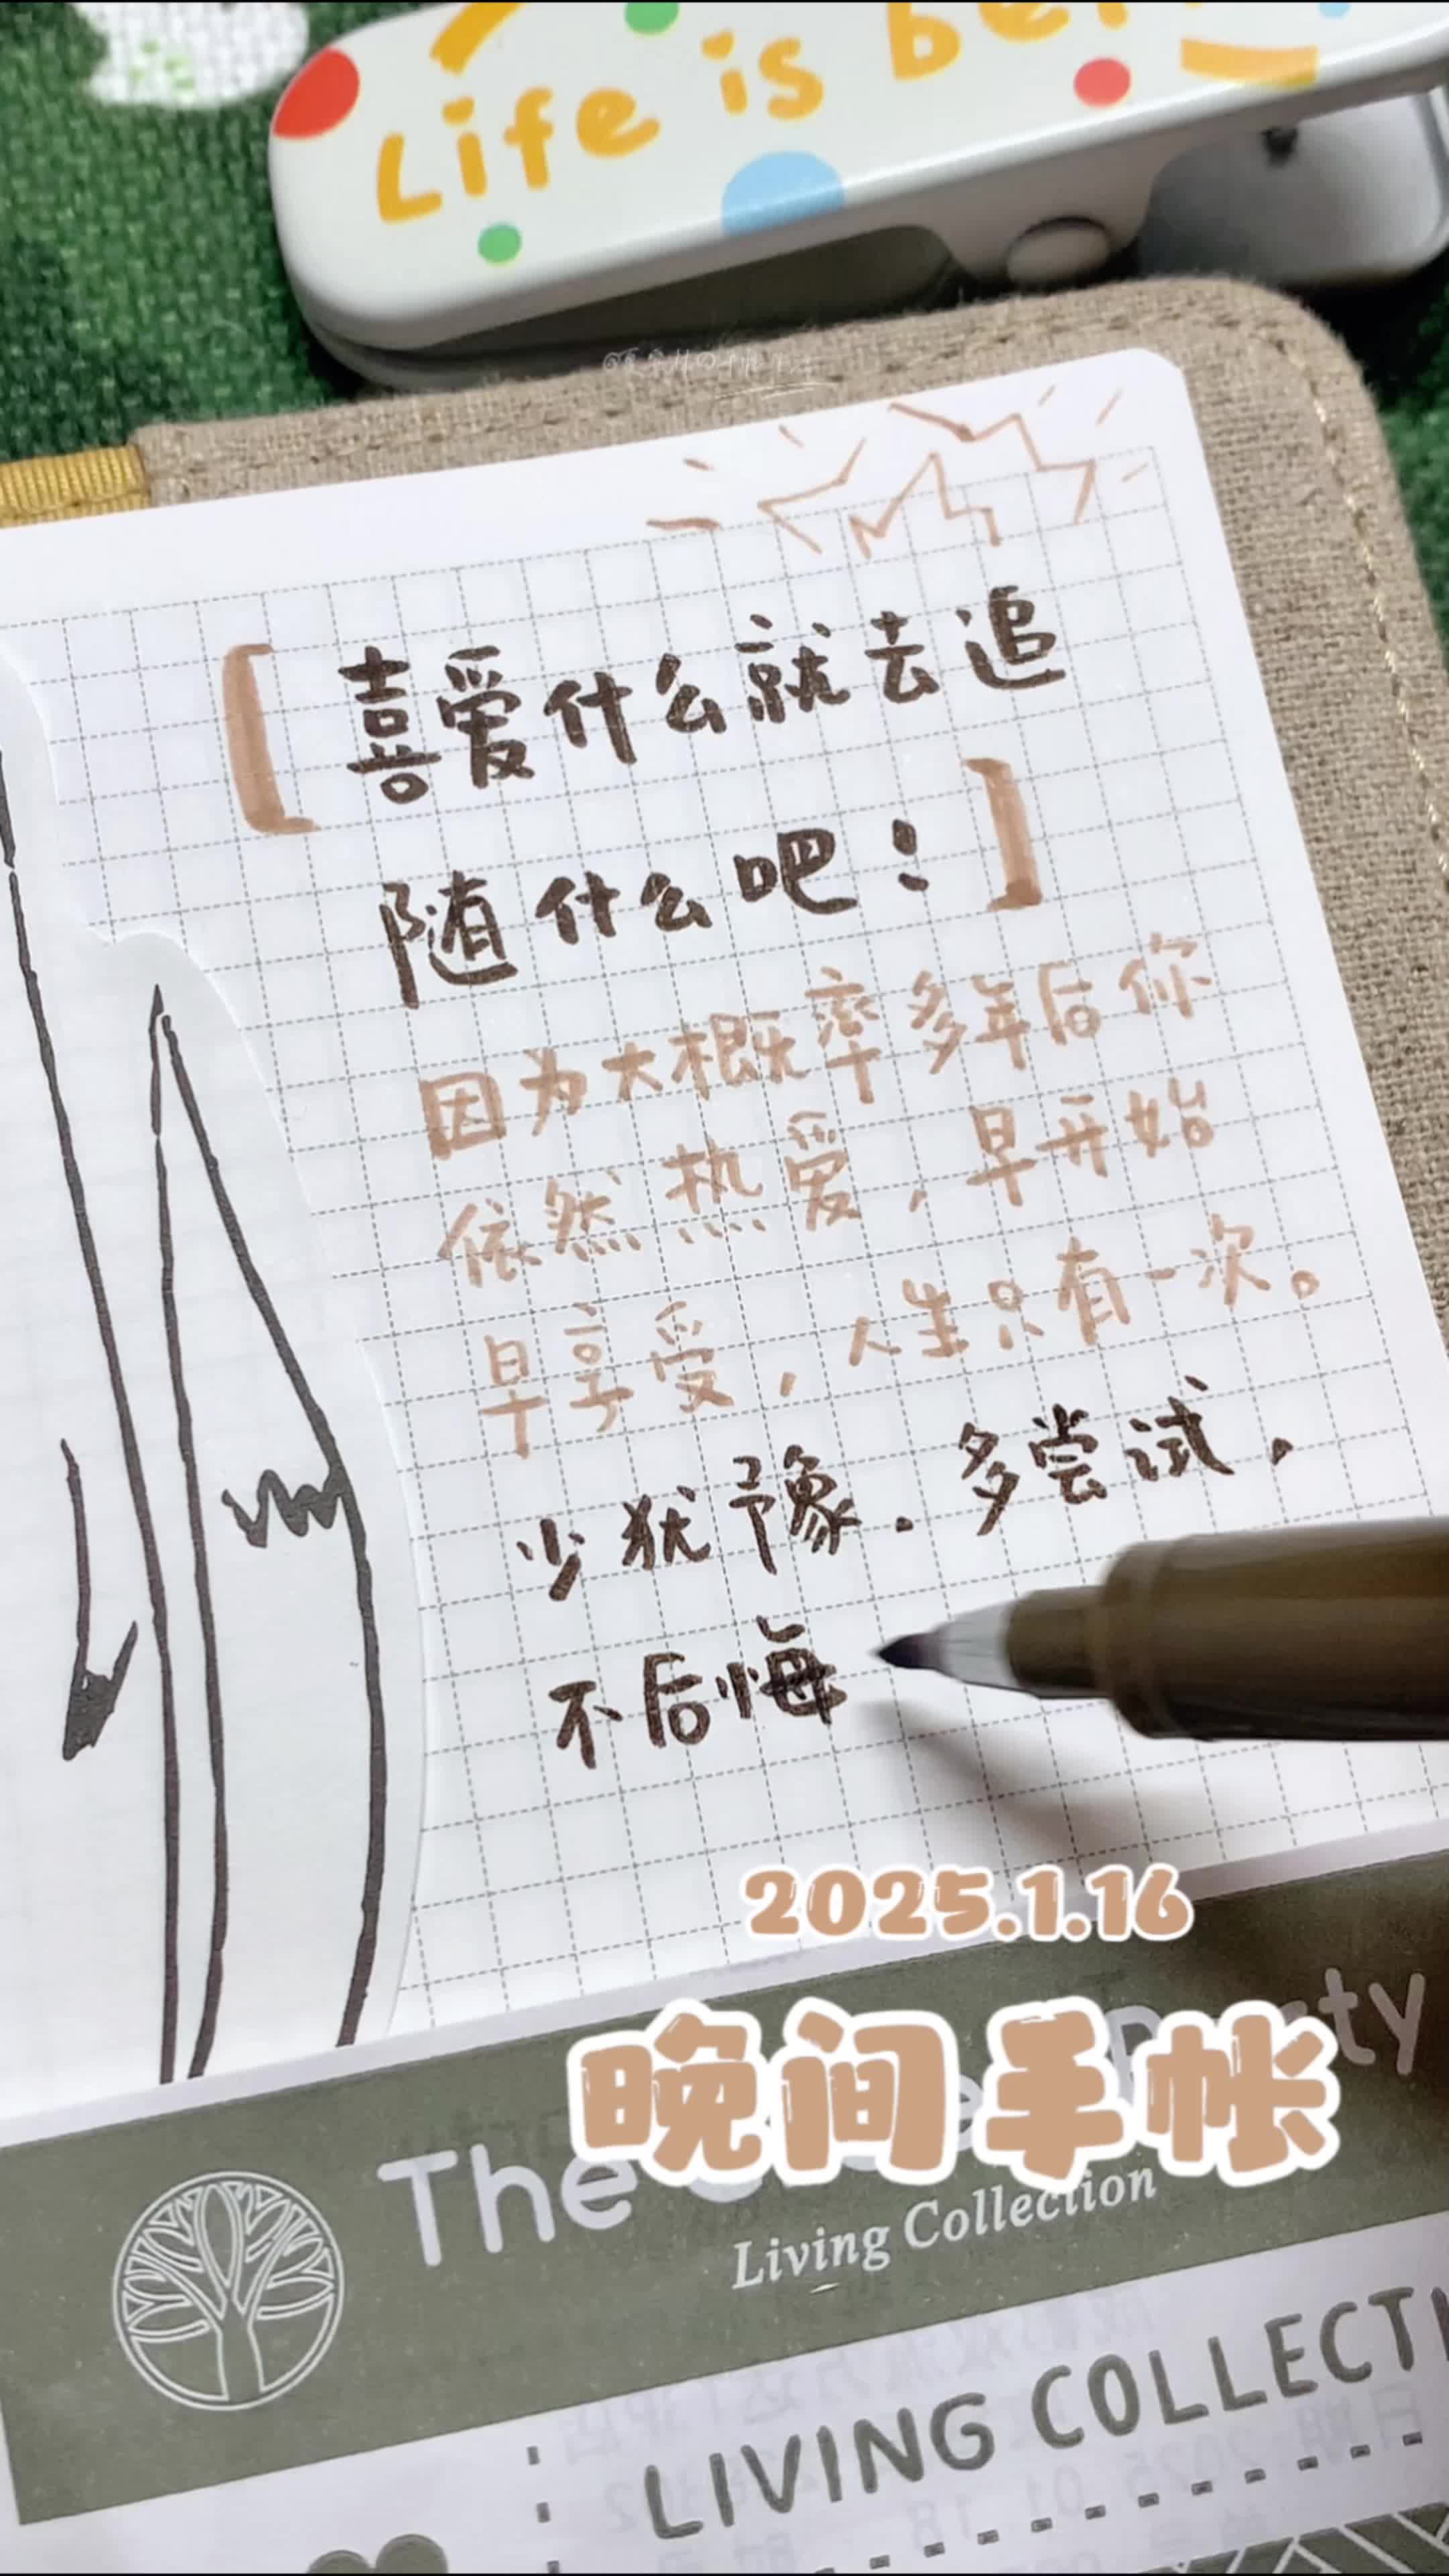 Life is
喜爱什么就去追
随什么吧！
因为大概率多年后你
依然热爱，早开始
早享受，人生只有一次。
少犹豫.多尝试，
不后悔
2025.1.16
晚间手帐
The
Living Collection
LIVING COLLECTI